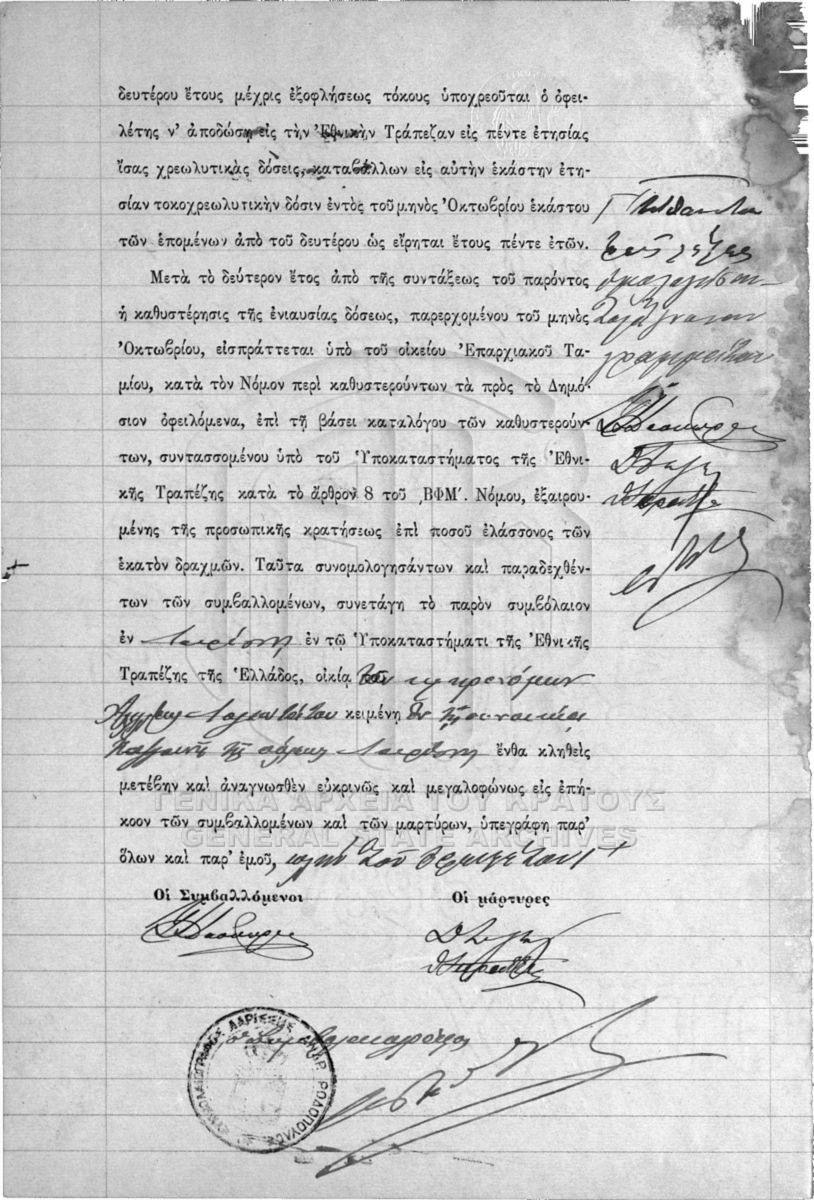 δευτέρου ἔτους μέχρις ἐξοφλήσεως τόκους ὑποχρεοῦται ὁ ὀφει-
λέτης ν' ἀποδώσῃ εἰς τὴν Ἐθνικὴν Τράπεζαν εἰς πέντε ἐτησίας
ἴσας χρεωλυτικὰς δόσεις, καταβάλλων εἰς αὐτὴν ἑκάστην ἐτη-
σίαν τοκοχρεωλυτικὴν δόσιν ἐντὸς τοῦ μηνὸς Ὀκτωβρίου ἑκάστου
τῶν ἑπομένων ἀπὸ τοῦ δευτέρου ὡς εἴρηται ἔτους πέντε ἐτῶν.
Μετὰ τὸ δεύτερον ἔτος ἀπὸ τῆς συντάξεως τοῦ παρόντος
ἡ καθυστέρησις τῆς ἐνιαυσίας δόσεως, παρερχομένου τοῦ μηνὸς
Ὀκτωβρίου, εἰσπράττεται ὑπὸ τοῦ οἰκείου Ἐπαρχιακοῦ Τα-
μίου, κατὰ τὸν Νόμον περὶ καθυστερούντων τὰ πρὸς τὸ Δημό-
σιον ὀφειλόμενα, ἐπὶ τῇ βάσει καταλόγου τῶν καθυστερούν-
των, συντασσομένου ὑπὸ τοῦ Ὑποκαταστήματος τῆς Ἐθνι-
κῆς Τραπέζης κατὰ τὸ ἄρθρον 8 τοῦ ͵ΒΦΜ΄. Νόμου, ἐξαιρου-
μένης τῆς προσωπικῆς κρατήσεως ἐπὶ ποσοῦ ἐλάσσονος τῶν
ἑκατὸν δραχμῶν. Ταῦτα συνομολογησάντων καὶ παραδεχθέν-
των τῶν συμβαλλομένων, συνετάγη τὸ παρὸν συμβόλαιον
ἐν Λαρίσῃ ἐν τῷ Ὑποκαταστήματι τῆς Ἐθνικῆς
Τραπέζης τῆς Ἑλλάδος, οἰκίᾳ τῶν κληρονόμων
κειμένῃ ἐν τῇ συνοικίᾳ
τῆς πόλεως Λαρίσης ἔνθα κληθεὶς
μετέβην καὶ ἀναγνωσθὲν εὐκρινῶς καὶ μεγαλοφώνως εἰς ἐπή-
κοον τῶν συμβαλλομένων καὶ τῶν μαρτύρων, ὑπεγράφη παρ'
ὅλων καὶ παρ' ἐμοῦ, πλὴν τοῦ
Οἱ Συμβαλλόμενοι
Οἱ μάρτυρες
ὁ Συμβολαιογράφος
ΣΥΜΒΟΛΑΙΟΓΡΑΦΟΣ ΛΑΡΙΣΣΗΣ ΡΟΔΟΠΟΥΛΟΣ
ΓΕΝΙΚΑ ΑΡΧΕΙΑ ΤΟΥ ΚΡΑΤΟΥΣ
GENERAL STATE ARCHIVES